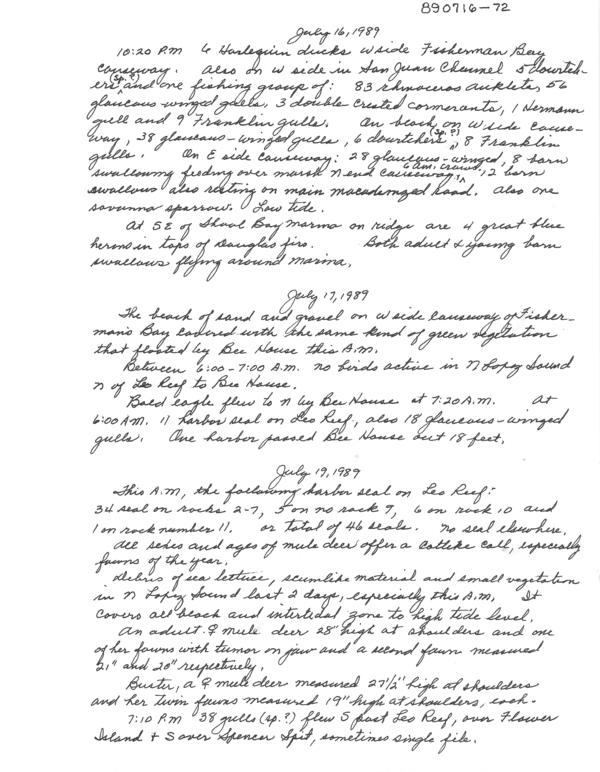 890716-72
July 16, 1989
10:20 P.M 6 Harlequin ducks W side Fisherman Bay
causeway. Also on W side in San Juan Channel 5 dowitch-
ers (sp.?) and one fishing group of: 83 rhinoceros auklets, 56
glaucous-winged gulls, 3 double crested cormorants, 1 Hermann
gull and 9 Franklin gulls. On beach on W side cause-
way, 38 glaucous-winged gulls, 6 dowitchers (sp.?), 8 Franklin
gulls. On E side causeway: 28 glaucous-winged, 8 barn
swallows feeding over marsh N end causeway, 6 am. crows, 12 barn
swallows also resting on main macadamized road. Also one
savanna sparrow. Low tide.
At SE of Shoal Bay Marina on ridge are 4 great blue
herons in tops of Douglas firs. Both adult & young barn
swallows flying around marina.
July 17, 1989
The beach of sand and gravel on W side causeway of Fisher-
man's Bay covered with the same kind of green vegetation
that floated by Bee House this A.M.
Between 6:00-7:00 A.M. no birds active in N Lopez Sound
N of Leo Reef to Bee House.
Bald eagle flew to N by Bee House at 7:20 A.M. At
6:00 A.M. 11 harbor seal on Leo Reef, also 18 glaucous-winged
gulls. One harbor passed Bee House out 18 feet.
July 19, 1989
This A.M, the following harbor seal on Leo Reef:
34 seal on rocks 2-7, 5 on no rock 9, 6 on rock 10 and
1 on rock number 11. or total of 46 seals. No seal elsewhere.
All sexes and ages of mule deer offer a catlike call, especially
fawns of the year.
Debris of sea lettuce, scumlike material and small vegetation
in N Lopez Sound last 2 days, especially this A.M. It
covers all beach and intertidal zone to high tide level.
An adult ♀ mule deer 28" high at shoulders and one
of her fawns with tumor on jaw and a second fawn measured
21" and 20" respectively.
Buster, a ♀ mule deer measured 27 1/2" high at shoulders
and her twin fawns measured 19" high at shoulders, each.
7:10 P.M 38 gulls (sp.?) flew S past Leo Reef, over Flower
Island & S over Spencer Spit, sometimes single file.